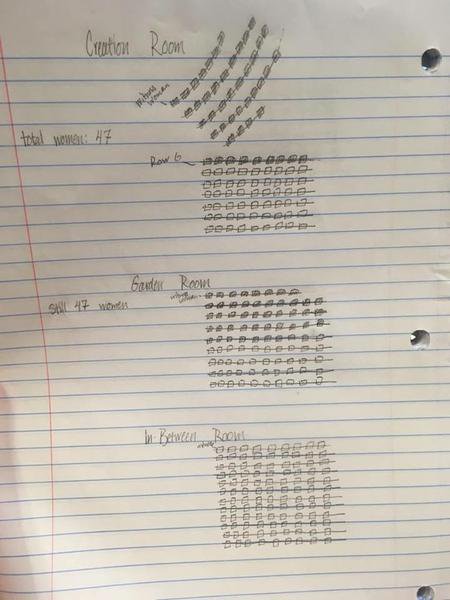 Creation Room
witness
women
total women: 47
Row 6
Garden Room
witness
women
still 47 women
In-Between Room
witness